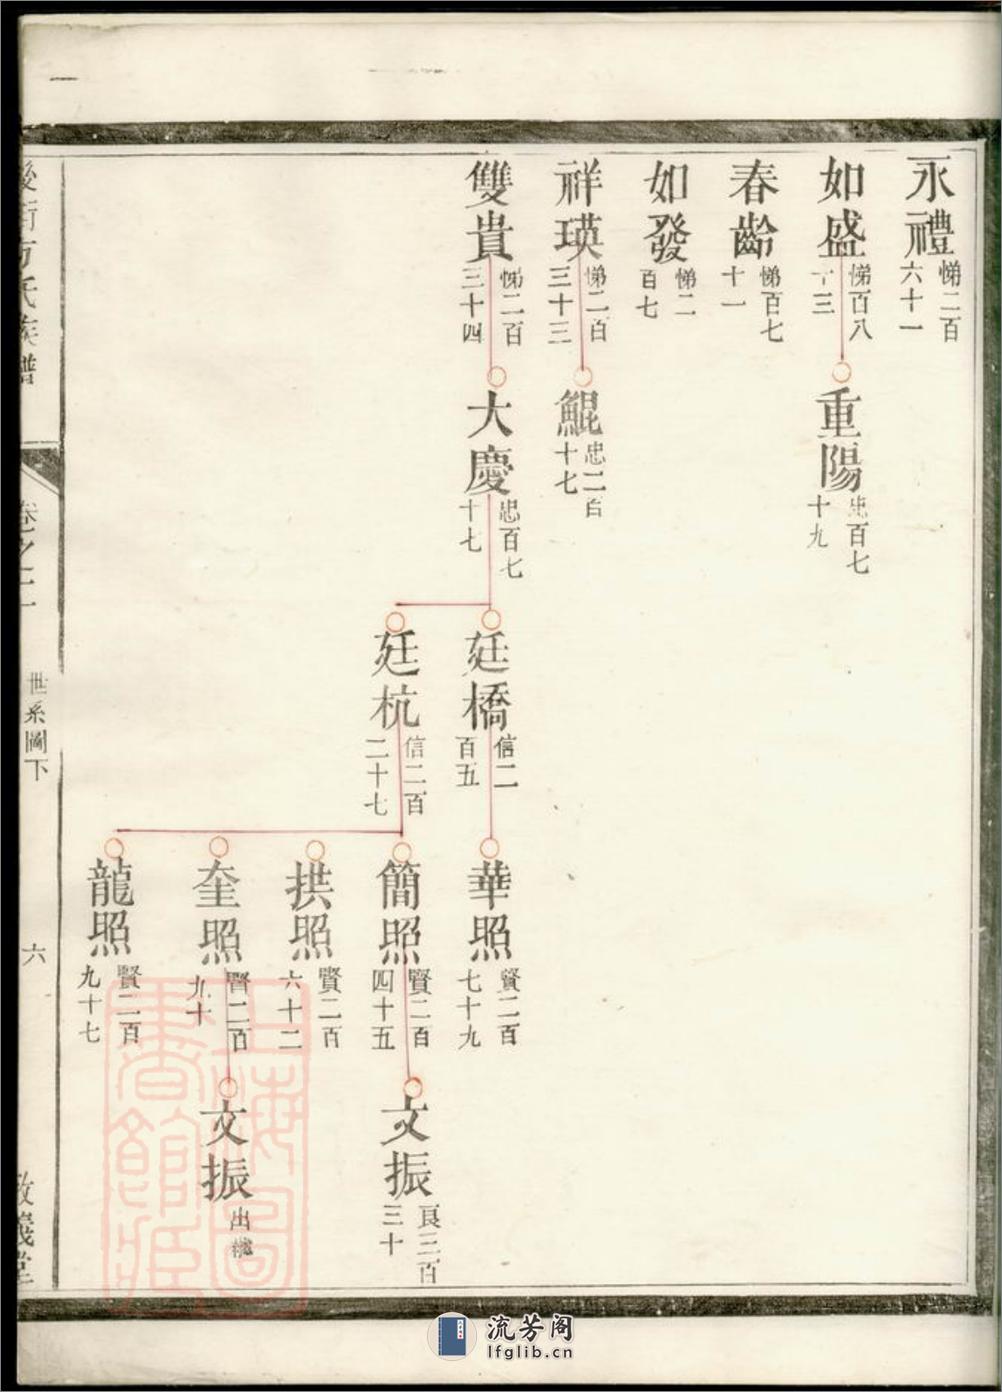 永禮
悌二百
六十一
如盛
悌百八
十三
重陽
忠百七
十九
春齡
悌百七
十一
如發
悌二
百七
祥瑛
悌二百
三十三
鯤
忠二百
十七
雙貴
悌二百
三十四
大慶
忠百七
十七
廷橋
信二
百五
華照
賢二百
七十九
廷杭
信二百
二十七
簡照
賢二百
四十五
文振
良三百
三十
拱照
賢二百
六十二
奎照
賢二百
九十
文振
出繼
龍照
賢二百
九十七
方氏族譜
卷之二
世系圖下
六
敦義堂
上海圖書館藏
流芳阁
lfglib.cn